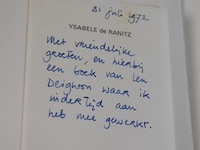 31 juli 1972
YSABELE de RANITZ
Met vriendelijke
groeten, en hierbij
een boek van Len
Deighton waar ik
indertijd aan
heb mee gewerkt.